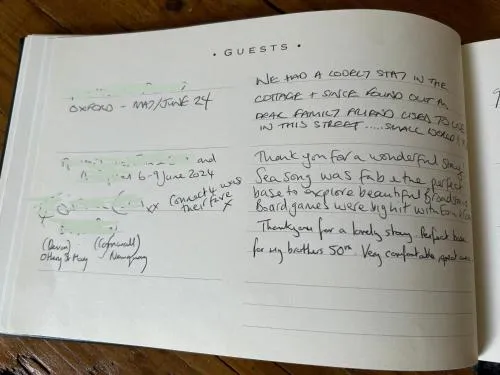 • GUESTS •
OXFORD - MAY/JUNE 24
WE HAD A LOVELY STAY IN THE
COTTAGE + SINCE FOUND OUT A
DEAR FAMILY FRIEND USED TO LIVE
IN THIS STREET ..... SMALL WORLD!
and
6-9 June 2024
Connect 4 was
their fave
xx
x
Thank you for a wonderful stay!
Seasong was fab & the perfect
base to explore beautiful
Board games were big hit with
(Devon) (Cornwall)
Newquay
Thankyou for a lovely stay. Perfect base
for my brothers 50th. Very comfortable, great